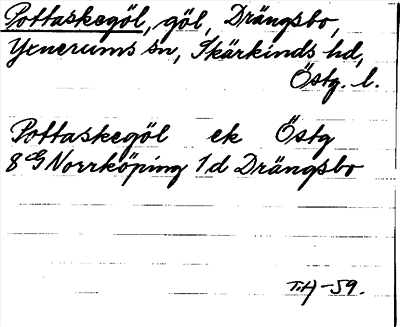 Pottaskegöl, göl, Drängsbo,
Yxnerums sn, Skärkinds hd,
Östg. l.
Pottaskegöl ek Östg
8 G Norrköping 1 d Drängsbo
T.H -59.